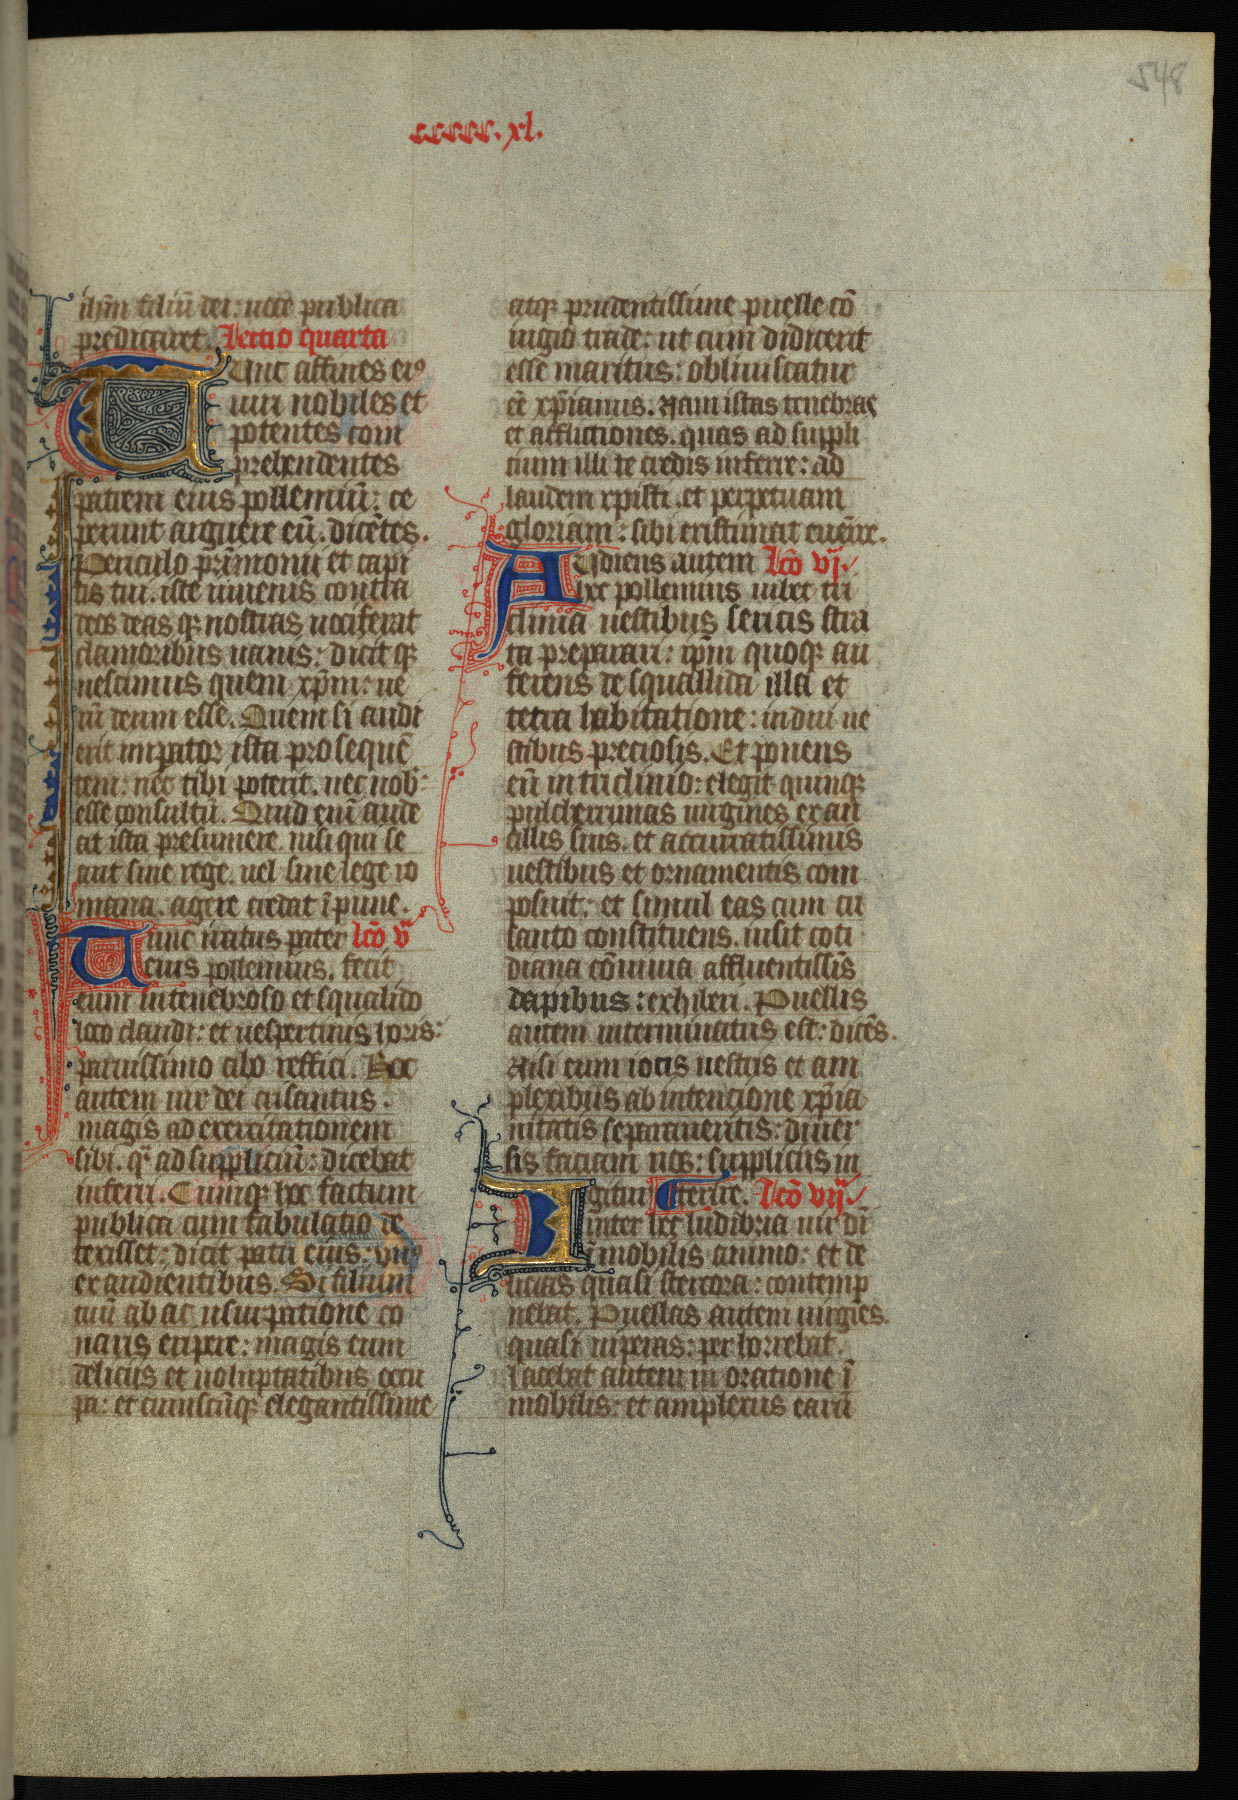 548
ccccc.xl.
ihm filiū dei: uoce publica
predicaret. Lectio quarta
Tunc affines eiꝰ
uiri nobiles et
potentes com
prehendentes
patrem eius pollemiū: ce
perunt arguere eū. dicētes.
Periculo pr̄imonii et capi
tis tui. iste iuuenis contra
deos deas qꝫ nostras uociferat
clamoribus uanis: dicit qꝫ
nescimus quem xp̄m: ue
rū deum esse. Quem si audi
erit imꝑator ista prosequē
tem: nec tibi poterit. nec nob
esse consultū. Quid enī aude
at ista presumere. nisi qui se
aut sine rege. uel sine lege ro
mana. agere credat ī pune.
Tunc iratus pater Lcō v̄
eius pollemius. fecit
eum in tenebroso et squalido
loco claudi: et uespertinis horis:
paruissimo cibo reffici. Hoc
autem uir dei crisantus.
magis ad exercitationem
sibi. qͣ ad suppliciū: dicebat
inferri. Cumqꝫ hoc factum
publica cum fabulatio de
texisset: dicit patri eius: vnꝰ
ex audientibus. Si filium
tuū ab ac usurpatione co
naris eripere: magis eum
deliciis et uoluptatibus occu
pa: et cuiuscūqꝫ elegantissime
atqꝫ prudentissime puelle cō
iugio trade: ut cum didicerit
esse maritus: obliuiscatur
eē xp̄ianus. Nam istas tenebras
et afflictiones. quas ad suppli
cium illi te credis inferre: ad
laudem xpisti. et perpetuam
gloriam: sibi existimat euēire.
Audiens autem Lcō vi.
hec pollemius iubet tri
clinia uestibus sericis stra
ta preparari: ip̄m quoqꝫ au
ferens de squallida illa et
tetra habitatione: indui ue
stibus preciosis. Et ponens
eū in triclinio: elegit quinqꝫ
pulcherrimas uirgines ex an
cillis suis. et accuratissimis
uestibus et ornamentis com
posuit: et simul eas cum cri
santo constituens. iusit coti
diana cōuiuia affluentissīs
dapibus: exhiberi. Puellis
autem interminatus est: dicēs.
Nisi eum iocis uestris et am
plexibus ab intencione xp̄ia
nitatis separaueritis: diuer
sis faciam uos: suppliciis in
Igitur terire. Lcō vii.
inter hec ludibria uir dī
īmobilis animo: et de
licias quasi stercora: contemp
nebat. Puellas autem uirgies.
quasi uiperas: per horrebat.
Iacebat autem in oratione ī
mobilis: et amplexus earū